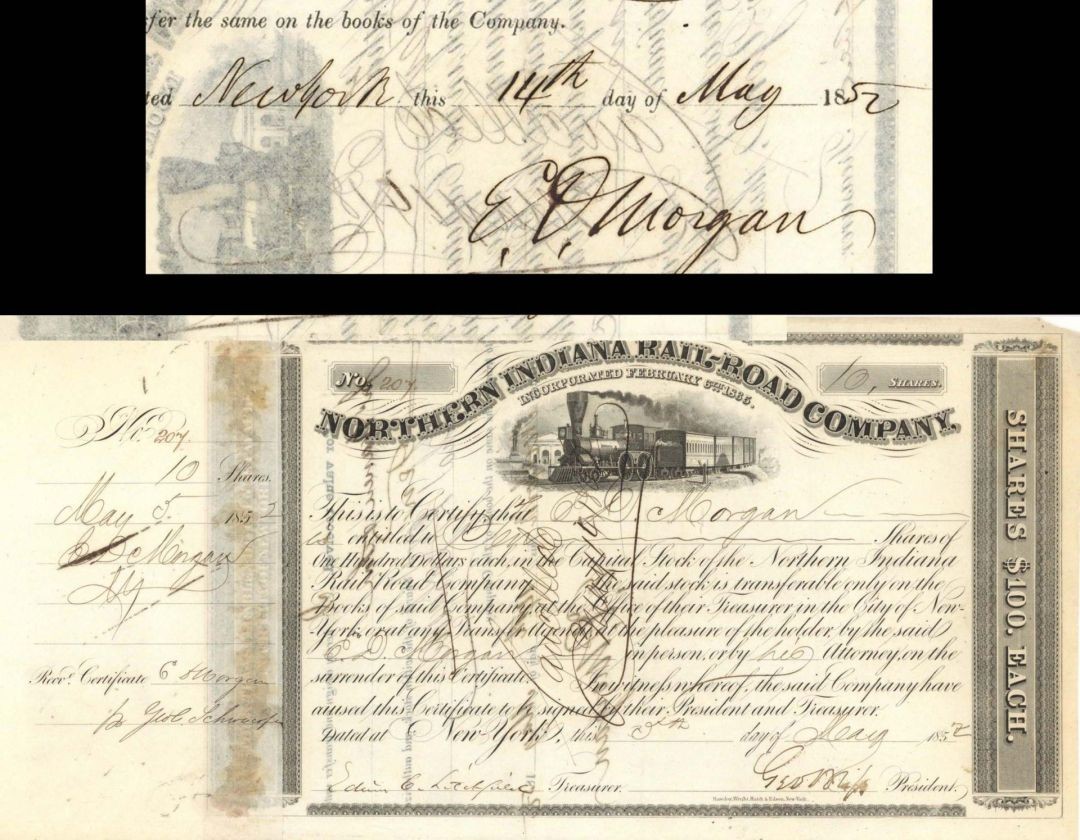 fer the same on the books of the Company.
ted New York this 14th day of May 1852
E. D. Morgan
No. 207.
10 Shares.
May 5 1852
E D Morgan
N Y
Recd. Certificate E D Morgan
Geo. 
No. 207. 10, SHARES.
NORTHERN INDIANA RAIL-ROAD COMPANY,
INCORPORATED FEBRUARY 6TH 1835.
This is to Certify that E D Morgan
is entitled to Ten Shares of
One Hundred Dollars each, in the Capital Stock of the Northern Indiana
Rail Road Company. The said stock is transferable only on the
Books of said Company, at the Office of their Treasurer in the City of New-
York, or at any Transfer Agency at the pleasure of the holder, by the said
E D Morgan in person, or by his Attorney, on the
surrender of this Certificate. In witness whereof, the said Company have
caused this Certificate to be signed by their President and Treasurer.
Dated at New-York, this 5th day of May 1852
Edwin C. Litchfield Treasurer. Geo Bliss President.
SHARES $100. EACH.